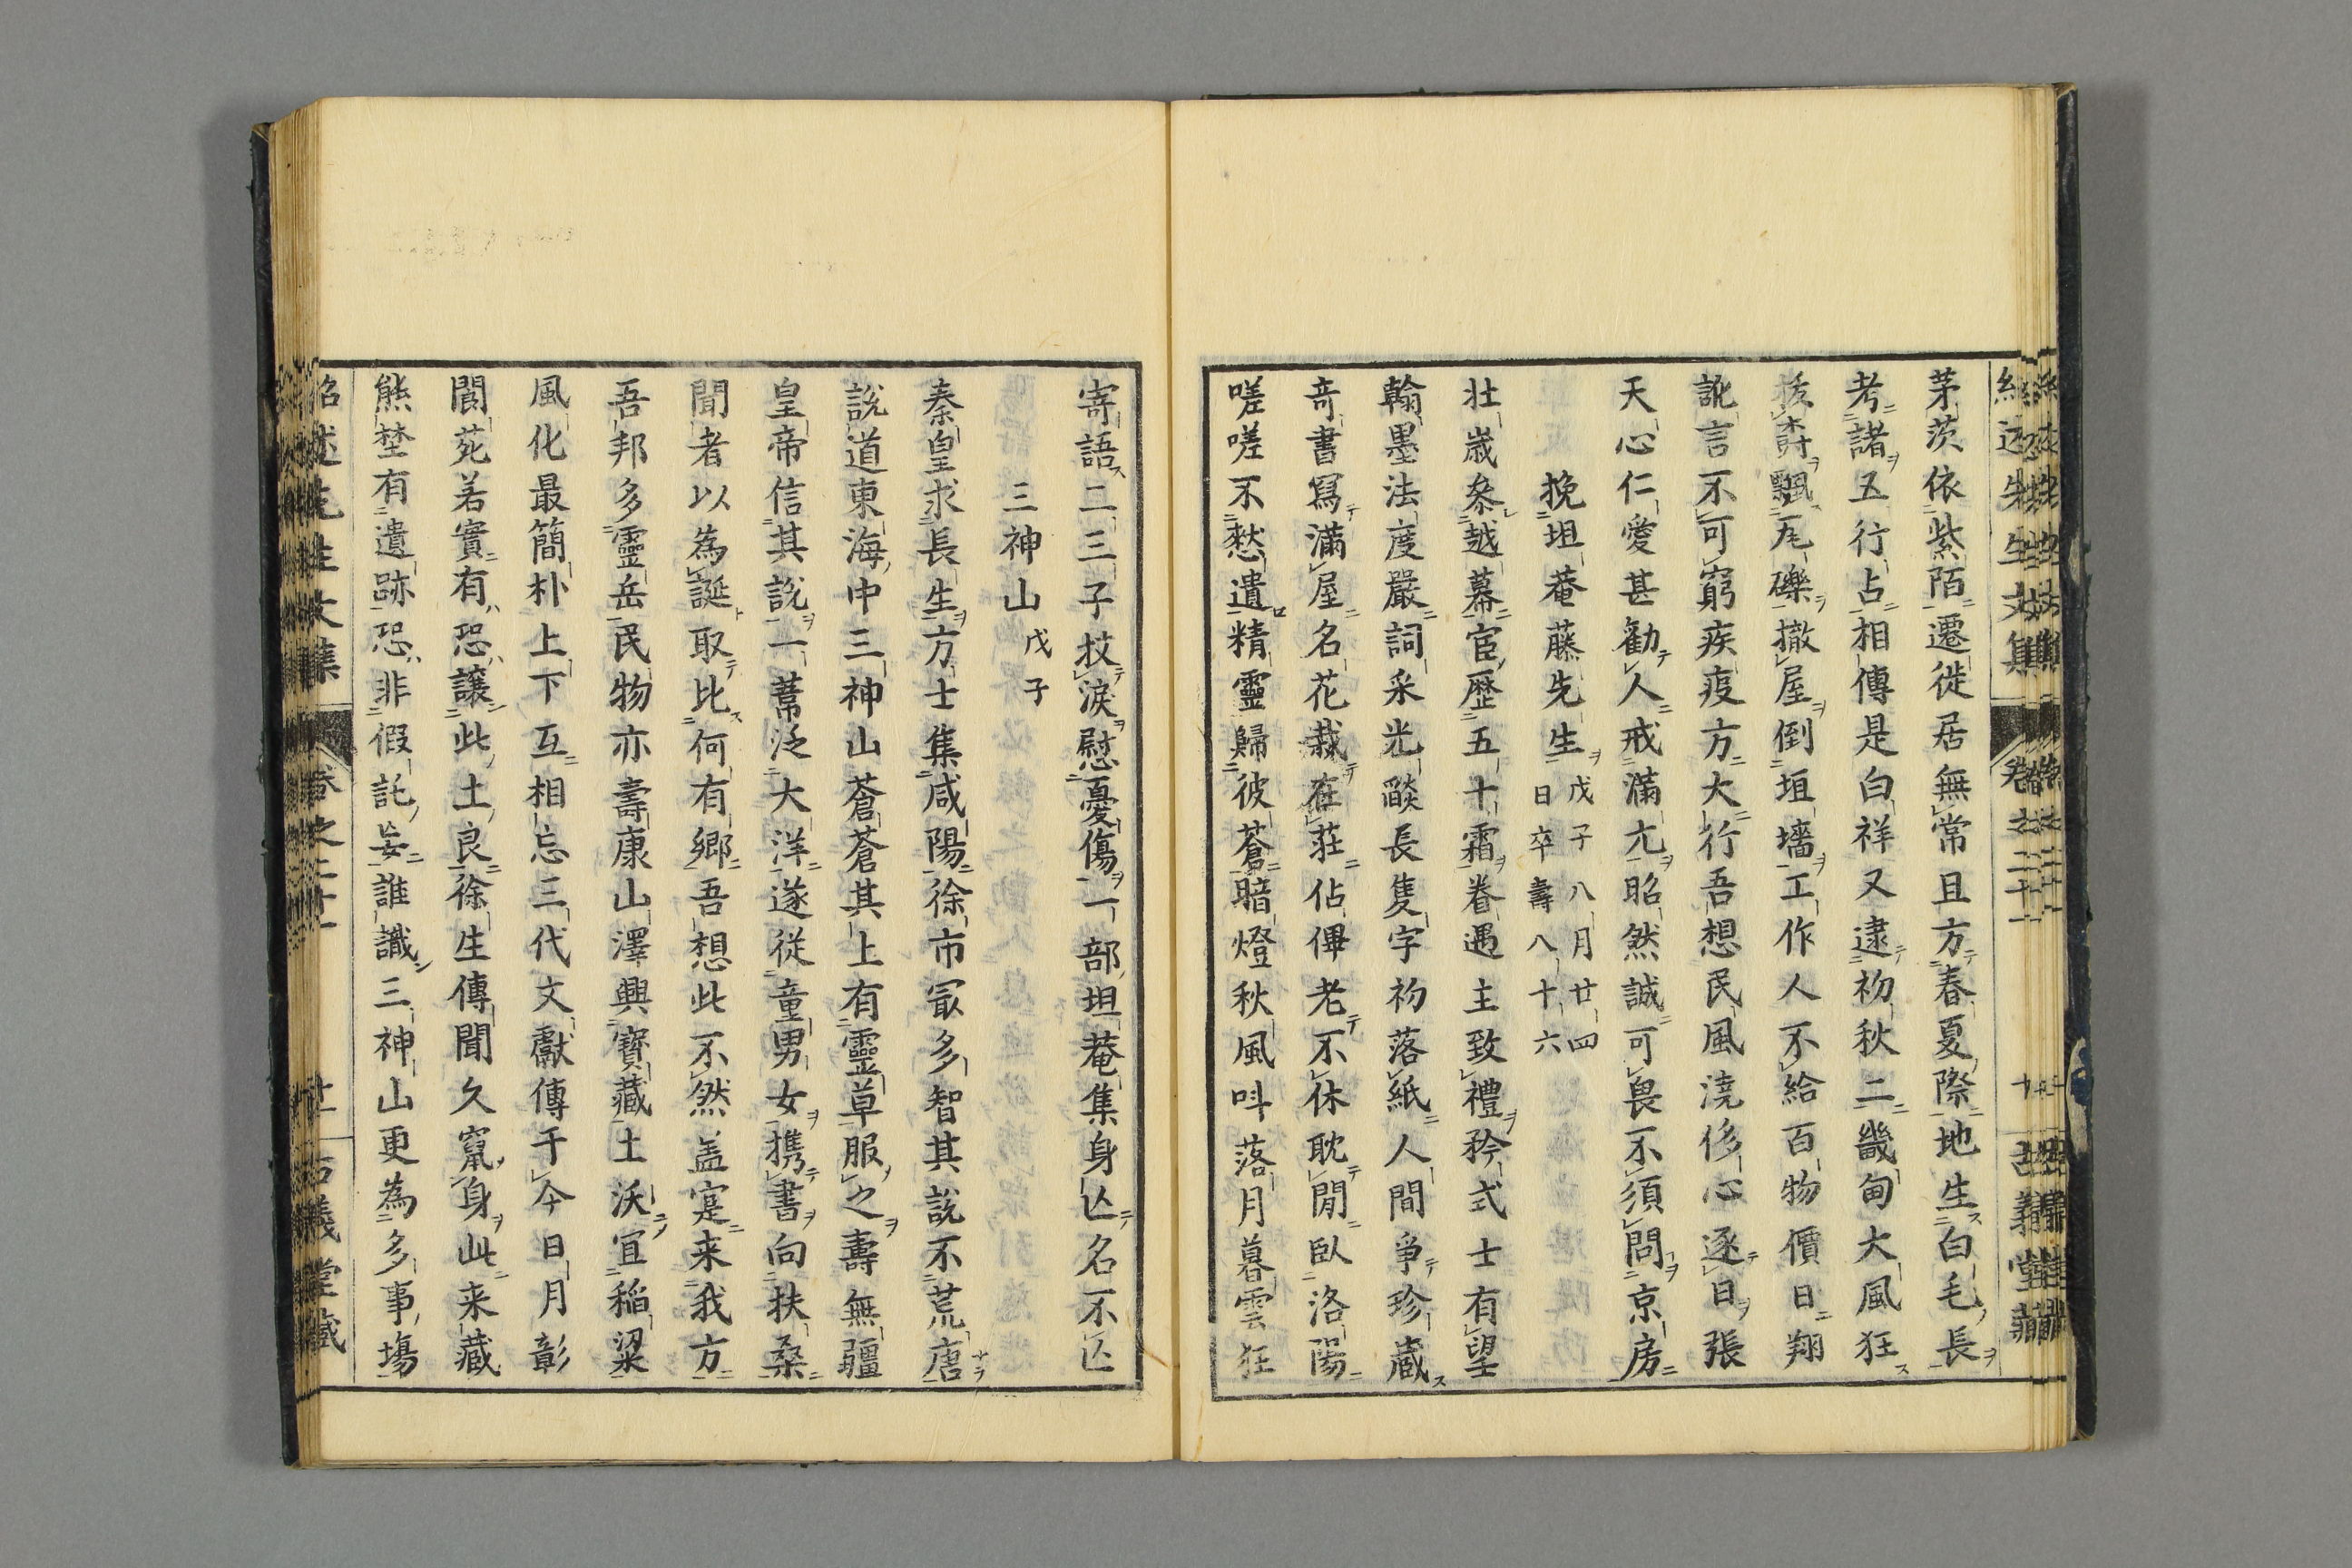 茅茨依紫陌遷徙居無常且方春夏際地生白毛長
考諸五行占相傳是白祥又逮初秋二畿甸大風狂
拔樹飄瓦礫撤屋倒垣墻工作人不給百物價日翔
訛言不可窮疾疫方大行吾想民風澆侈心逐日張
天心仁愛甚勸人戒滿亢昭然誠可畏不須問京房
挽坦菴藤先生戊子八月廿四
日卒壽八十六
壮歳叅越幕宦歴五十霜眷遇主致禮矜式士有望
翰墨法度嚴詞采光燄長隻字初落紙人間爭珍藏
竒書寫滿屋名花栽在莊佔俾老不休耽閒臥洛陽
嗟嗟不憗遺精靈歸彼蒼暗燈秋風呌落月暮雲狂
寄語二三子抆淚慰憂傷一部坦菴集身亾名不亾
三神山戊子
秦皇求長生方士集咸陽徐市㝡多智其說不荒唐
說道東海中三神山蒼蒼其上有靈草服之壽無疆
皇帝信其說一葦泛大洋遂従童男女携書向扶桑
聞者以為誕取比何有郷吾想此不然盖寔来我方
吾邦多靈岳民物亦壽康山澤興寶藏土沃宜稲粱
風化最簡朴上下互相忘三代文獻傳于今日月彰
閬苑若實有恐讓此土良徐生傳聞久竄身此来藏
熊埜有遺跡恐非假託妄誰識三神山更為多事塲
紹述先生文集 卷之二十一 十一 古義堂藏